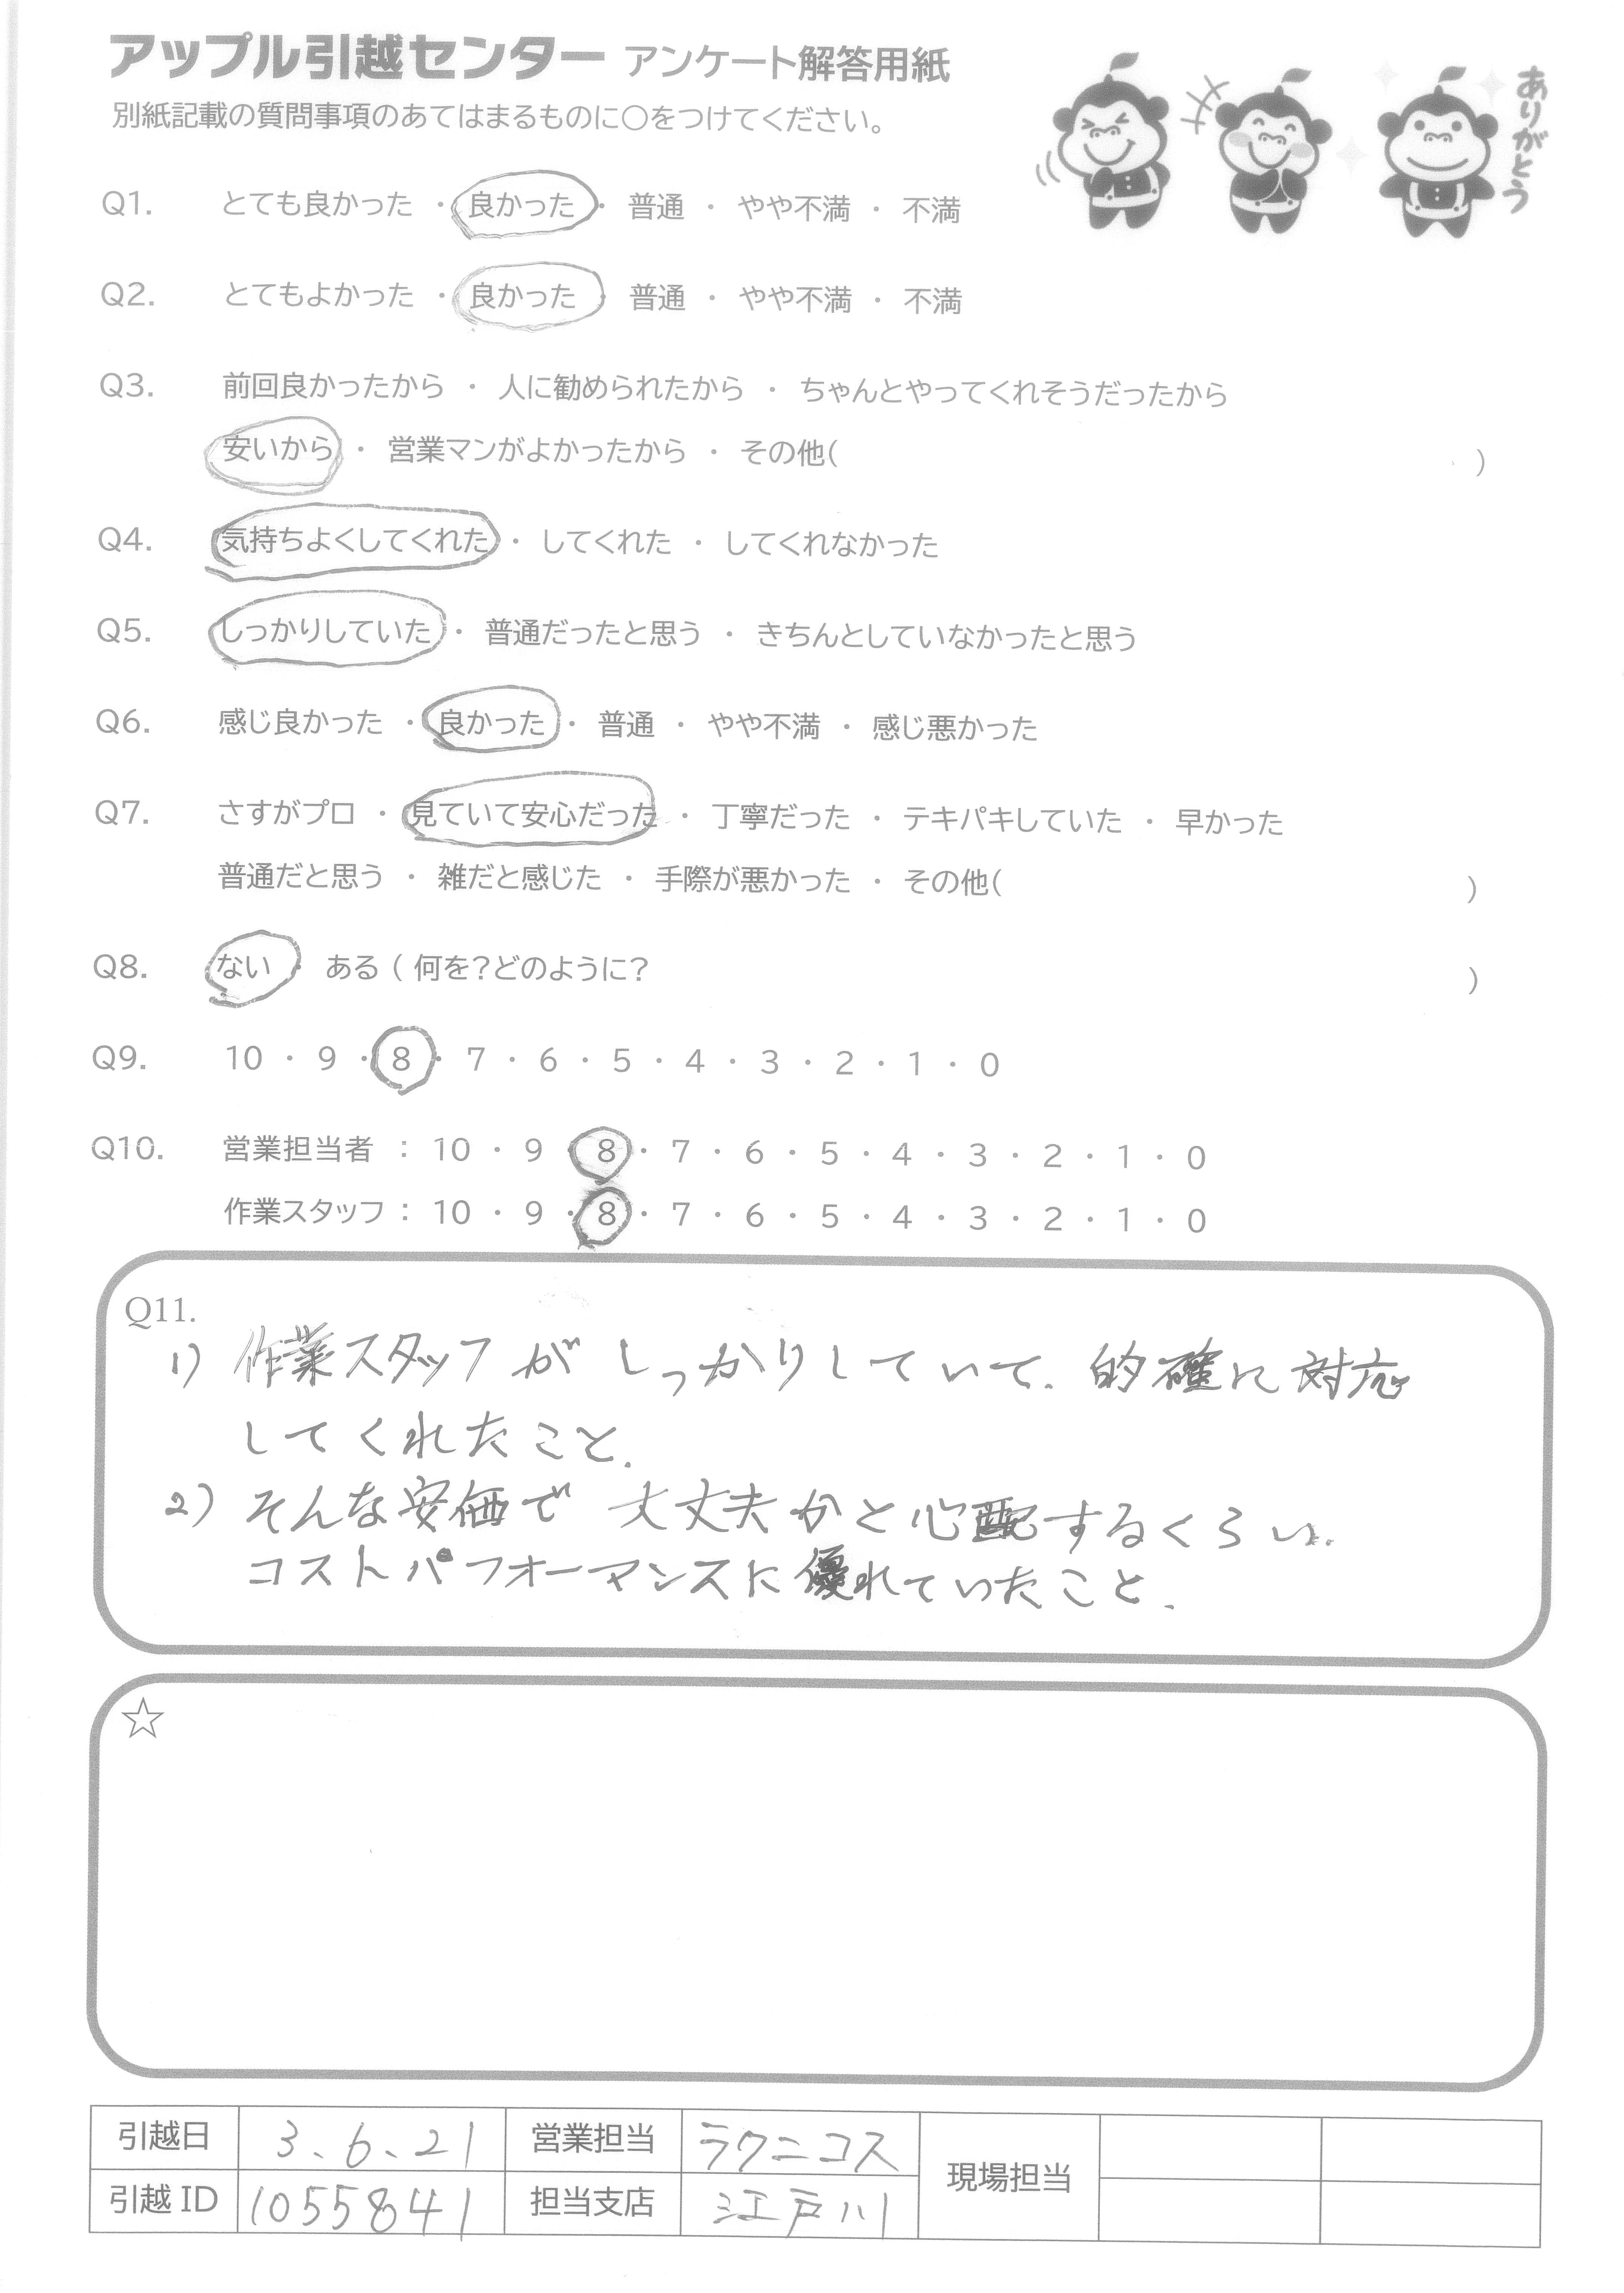 アップル引越センター アンケート解答用紙
別紙記載の質問事項のあてはまるものに○をつけてください。
ありがとう
Q1. とても良かった ・ 良かった ・ 普通 ・ やや不満 ・ 不満
Q2. とてもよかった ・ 良かった ・ 普通 ・ やや不満 ・ 不満
Q3. 前回良かったから ・ 人に勧められたから ・ ちゃんとやってくれそうだったから
安いから ・ 営業マンがよかったから ・ その他( )
Q4. 気持ちよくしてくれた ・ してくれた ・ してくれなかった
Q5. しっかりしていた ・ 普通だったと思う ・ きちんとしていなかったと思う
Q6. 感じ良かった ・ 良かった ・ 普通 ・ やや不満 ・ 感じ悪かった
Q7. さすがプロ ・ 見ていて安心だった ・ 丁寧だった ・ テキパキしていた ・ 早かった
普通だと思う ・ 雑だと感じた ・ 手際が悪かった ・ その他( )
Q8. ない ・ ある ( 何を?どのように? )
Q9. 10 ・ 9 ・ 8 ・ 7 ・ 6 ・ 5 ・ 4 ・ 3 ・ 2 ・ 1 ・ 0
Q10. 営業担当者 : 10 ・ 9 ・ 8 ・ 7 ・ 6 ・ 5 ・ 4 ・ 3 ・ 2 ・ 1 ・ 0
作業スタッフ : 10 ・ 9 ・ 8 ・ 7 ・ 6 ・ 5 ・ 4 ・ 3 ・ 2 ・ 1 ・ 0
Q11.
1) 作業スタッフがしっかりしていて、的確に対応
してくれたこと.
2) そんな安価で大丈夫かと心配するくらい、
コストパフォーマンスに優れていたこと.
☆
引越日 3、6、21 営業担当 ラクニコス 現場担当
引越ID 1055841 担当支店 江戸川